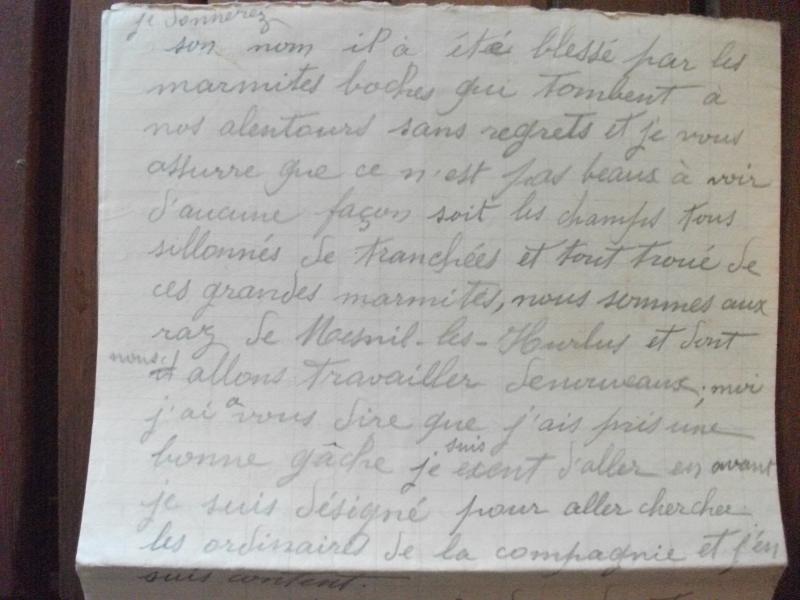 je donnerez
son nom il à été blessé par les
marmites boches qui tombent a
nos alentours sans regrets et je vous
assurre que ce n'est pas beaux à voir
d'aucune façon soit les champs tous
sillonnés de tranchées et tout troué de
ces grandes marmites, nous sommes aux
raz de Mesnil-les-Hurlus et dont
nous allons travailler denouveaux; moi
j'ai a vous dire que j'ais pris une
bonne gâche je suis exent d'aller en avant
je suis désigné pour aller chercher
les ordinaires de la compagnie et j'en
suis content.